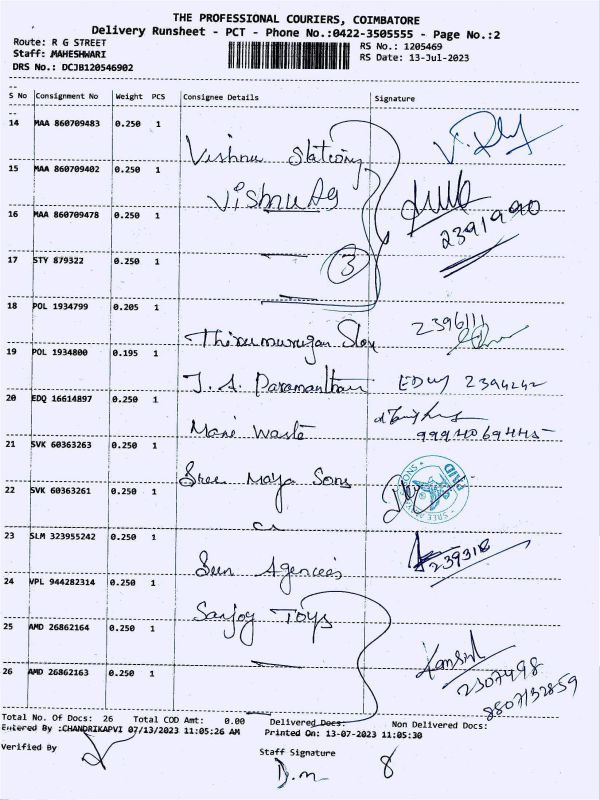 THE PROFESSIONAL COURIERS, COIMBATORE
Delivery Runsheet - PCT - Phone No.:0422-3505555 - Page No.:2
Route: R G STREET
RS No.: 1205469
Staff: MAHESHWARI
RS Date: 13-Jul-2023
DRS No.: DCJB120546902
S No Consignment No Weight PCS Consignee Details Signature
14 MAA 860709483 0.250 1
Vishnu
15 MAA 860709402 0.250 1
Vishnu Ag
16 MAA 860709478 0.250 1
2391990
17 STY 879322 0.250 1
3
18 POL 1934799 0.205 1
Thirumurugan 2396111
19 POL 1934800 0.195 1
20 EDQ 16614897 0.250 1
Mani Waste
21 SVK 60363263 0.250 1
Sree Maja Sons
22 SVK 60363261 0.250 1
23 SLM 323955242 0.250 1
Sun Agencies
24 VPL 944282314 0.250 1
Sanjoy Toys
25 AMD 26862164 0.250 1
26 AMD 26862163 0.250 1
2307498
Total No. Of Docs: 26 Total COD Amt: 0.00 Delivered Docs: Non Delivered Docs:
Entered By :CHANDRIKAPVI 07/13/2023 11:05:26 AM Printed On: 13-07-2023 11:05:30
Verified By
Staff Signature
D.m 8